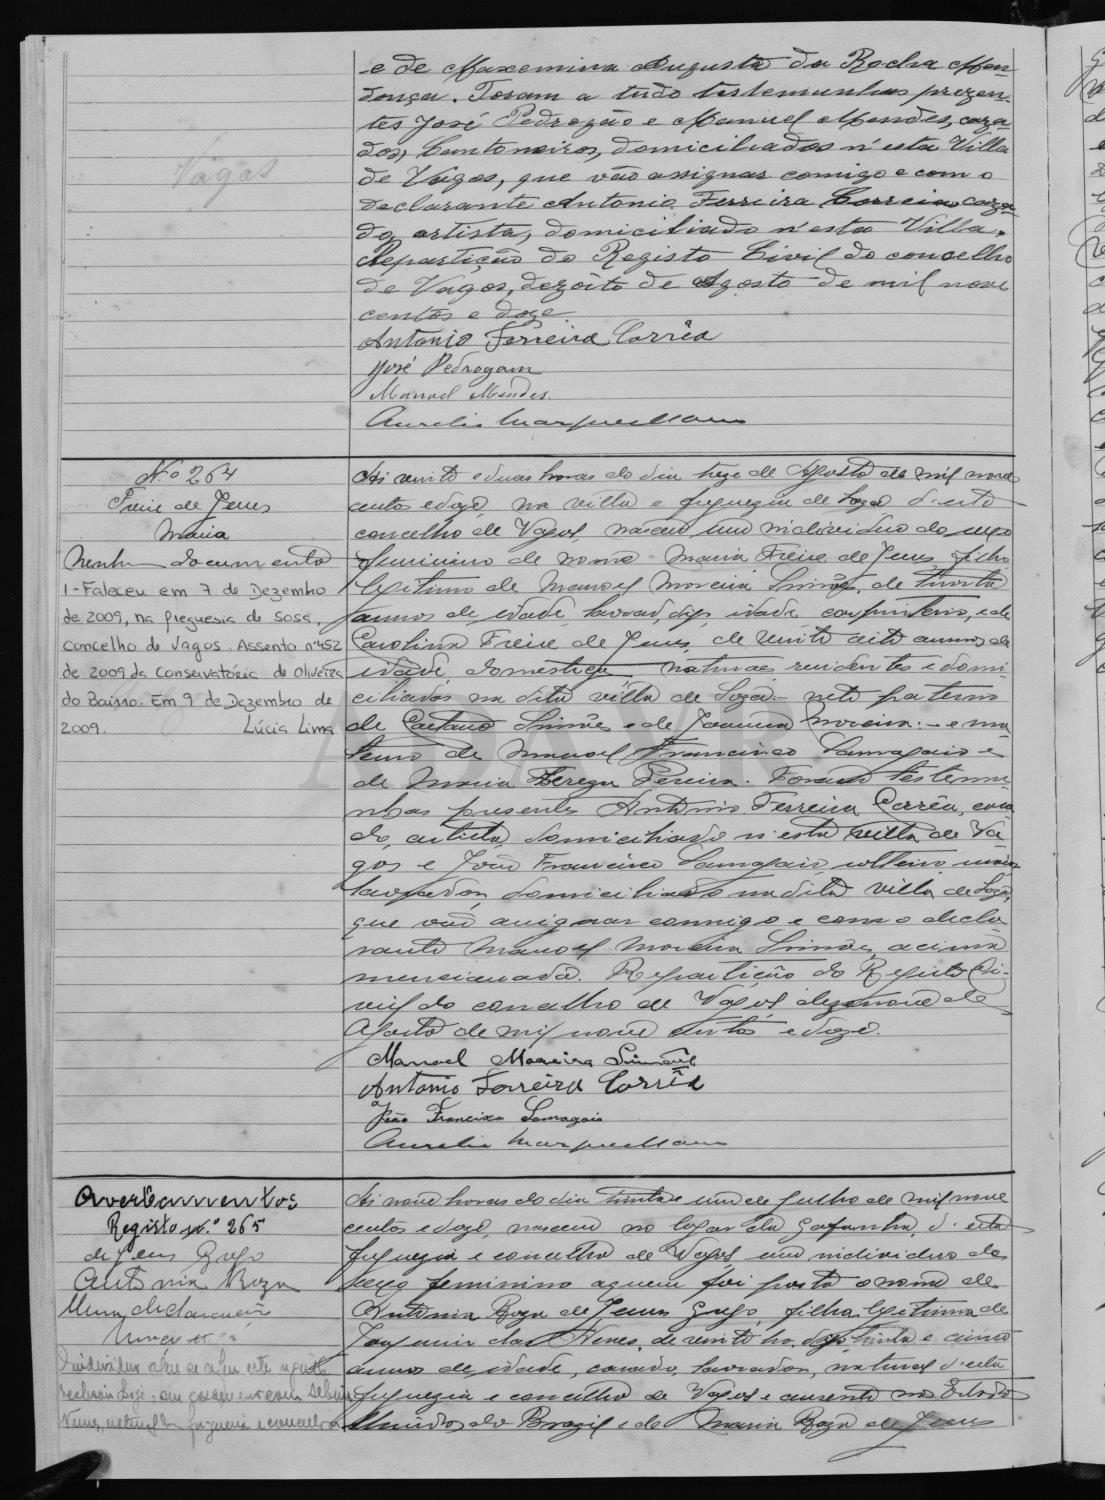 e de Maxemina Augusta da Rocha Men-
donça. Foram a tudo testemunhas prezen-
tes José Pedrozão e Manuel Mendes, caza-
dos, Cantoneiros, domiciliados n'esta Villa
de Vagos, que vão assignar comigo e com o
declarante Antonio Ferreira Correia, caza-
do, artista, domiciliado n'esta Villa.
Repartição do Registo Civil do concelho
de Vagos, dezoito de Agosto de mil nove
centos e doze
Antonio Ferreira Corrêa
José Pedrogam
Manoel Mendes.
Aurelio Marques
Vagos
N.º 264
Freire de Jesus
Maria
Nenhum documento
1-Faleceu em 7 de Dezembro
de 2009, na freguesia de Sosa,
concelho de Vagos. Assento nº452
de 2009 da Conservatória de Oliveira
do Bairro. Em 9 de Dezembro de
2009. Lúcia Lima
Ás vinte e duas horas do dia treze de Agosto de mil nove
centos e doze, na villa e freguezia de Soza d'este
concelho de Vagos, nasceu um individuo do sexo
feminino de nome Maria Freire de Jesus, filho
legitimo de Manoel Moreira Simões, de trinta
annos de edade, carpinteiro, e de
Carolina Freire de Jesus, de vinte oito annos de
idade, domestica, naturaes residentes e domi-
ciliados na dita villa de Soza.- neto paterno
de Caetano Simões e de Joanna Moreira:- e ma-
terno de Manoel Francisco Samagaio e
de Maria Thereza Pereira. Foram testemu-
nhas presentes Antonio Ferreira Corrêa, caza-
do, artista, domiciliado n'esta villa de Va-
gos e João Francisco Samagaio, solteiro, maior
lavrador, domiciliado na dita villa de Soza,
que vão assignar commigo e com o decla-
rante Manoel Moreira Simões, acima
mencionado. Repartição do Registo Ci-
vil do concelho de Vagos, dezenove de
Agosto de mil nove centos e doze.
Manoel Moreira Simões
Antonio Ferreira Corrêa
João Francisco Samagaio
Aurelio Marques
Averbamentos
Registo N.º 265
de Jesus Grego
Antonia Roza
Uma declaração
Ás nove horas do dia trinta e um de Julho de mil nove
centos e doze, nasceu no logar da Gafanha, d'esta
freguezia e concelho de Vagos, um individuo do
sexo feminino a quem foi posto o nome de
Antonia Roza de Jesus Grego, filha legitima de
Joaquim das Neves, de trinta e cinco
annos de edade, casado, lavrador, natural d'esta
freguezia e concelho de Vagos e ausente nos Estados
Unidos do Brazil e de Maria Roza de Jesus